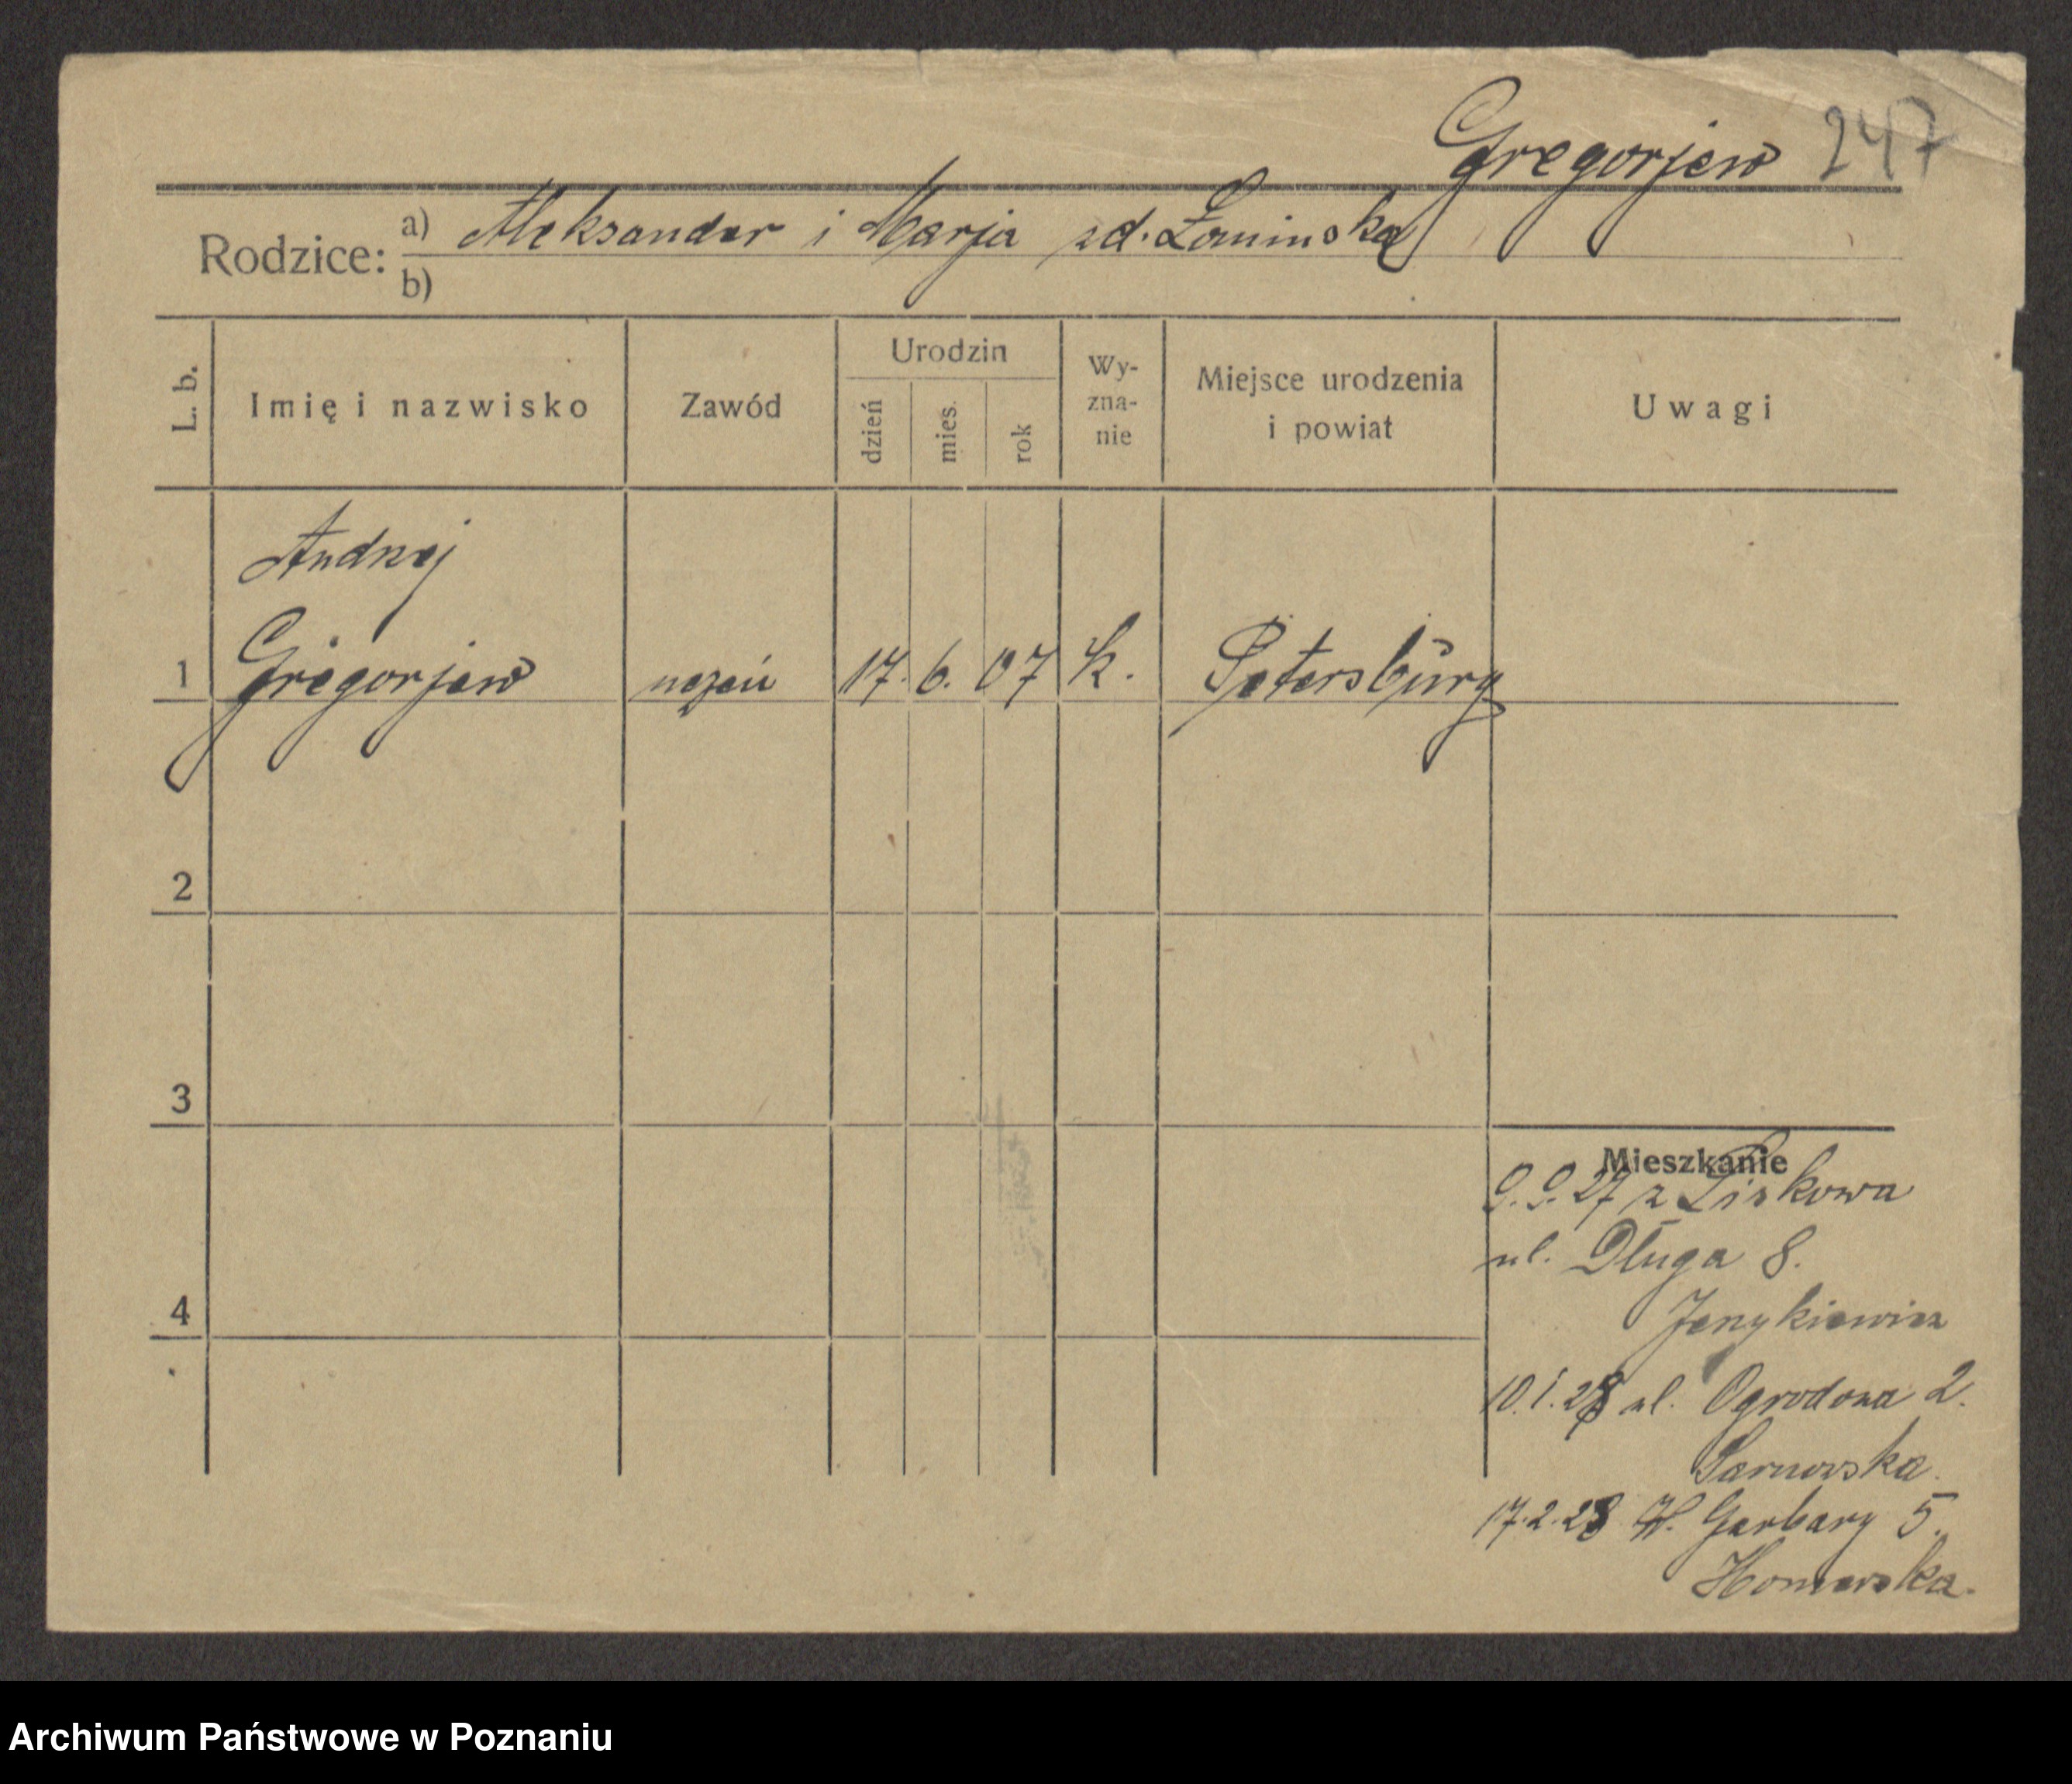 Gregorjew 247
Rodzice: a) Aleksander i Marja zd. Łaninska
b)
L. b. Imię i nazwisko Zawód Urodzin dzień mies. rok Wy-zna-nie Miejsce urodzenia i powiat Uwagi
Andrzej
1 Gregorjew uczeń 17. 6. 07 k. Petersburg
2
3
Mieszkanie
9.9.27 z Liskowa
ul. Długa 8.
4
10.1.28 ul. Ogrodowa 2.
Sarnowska.
17.2.28 W. Garbary 5.
Archiwum Państwowe w Poznaniu